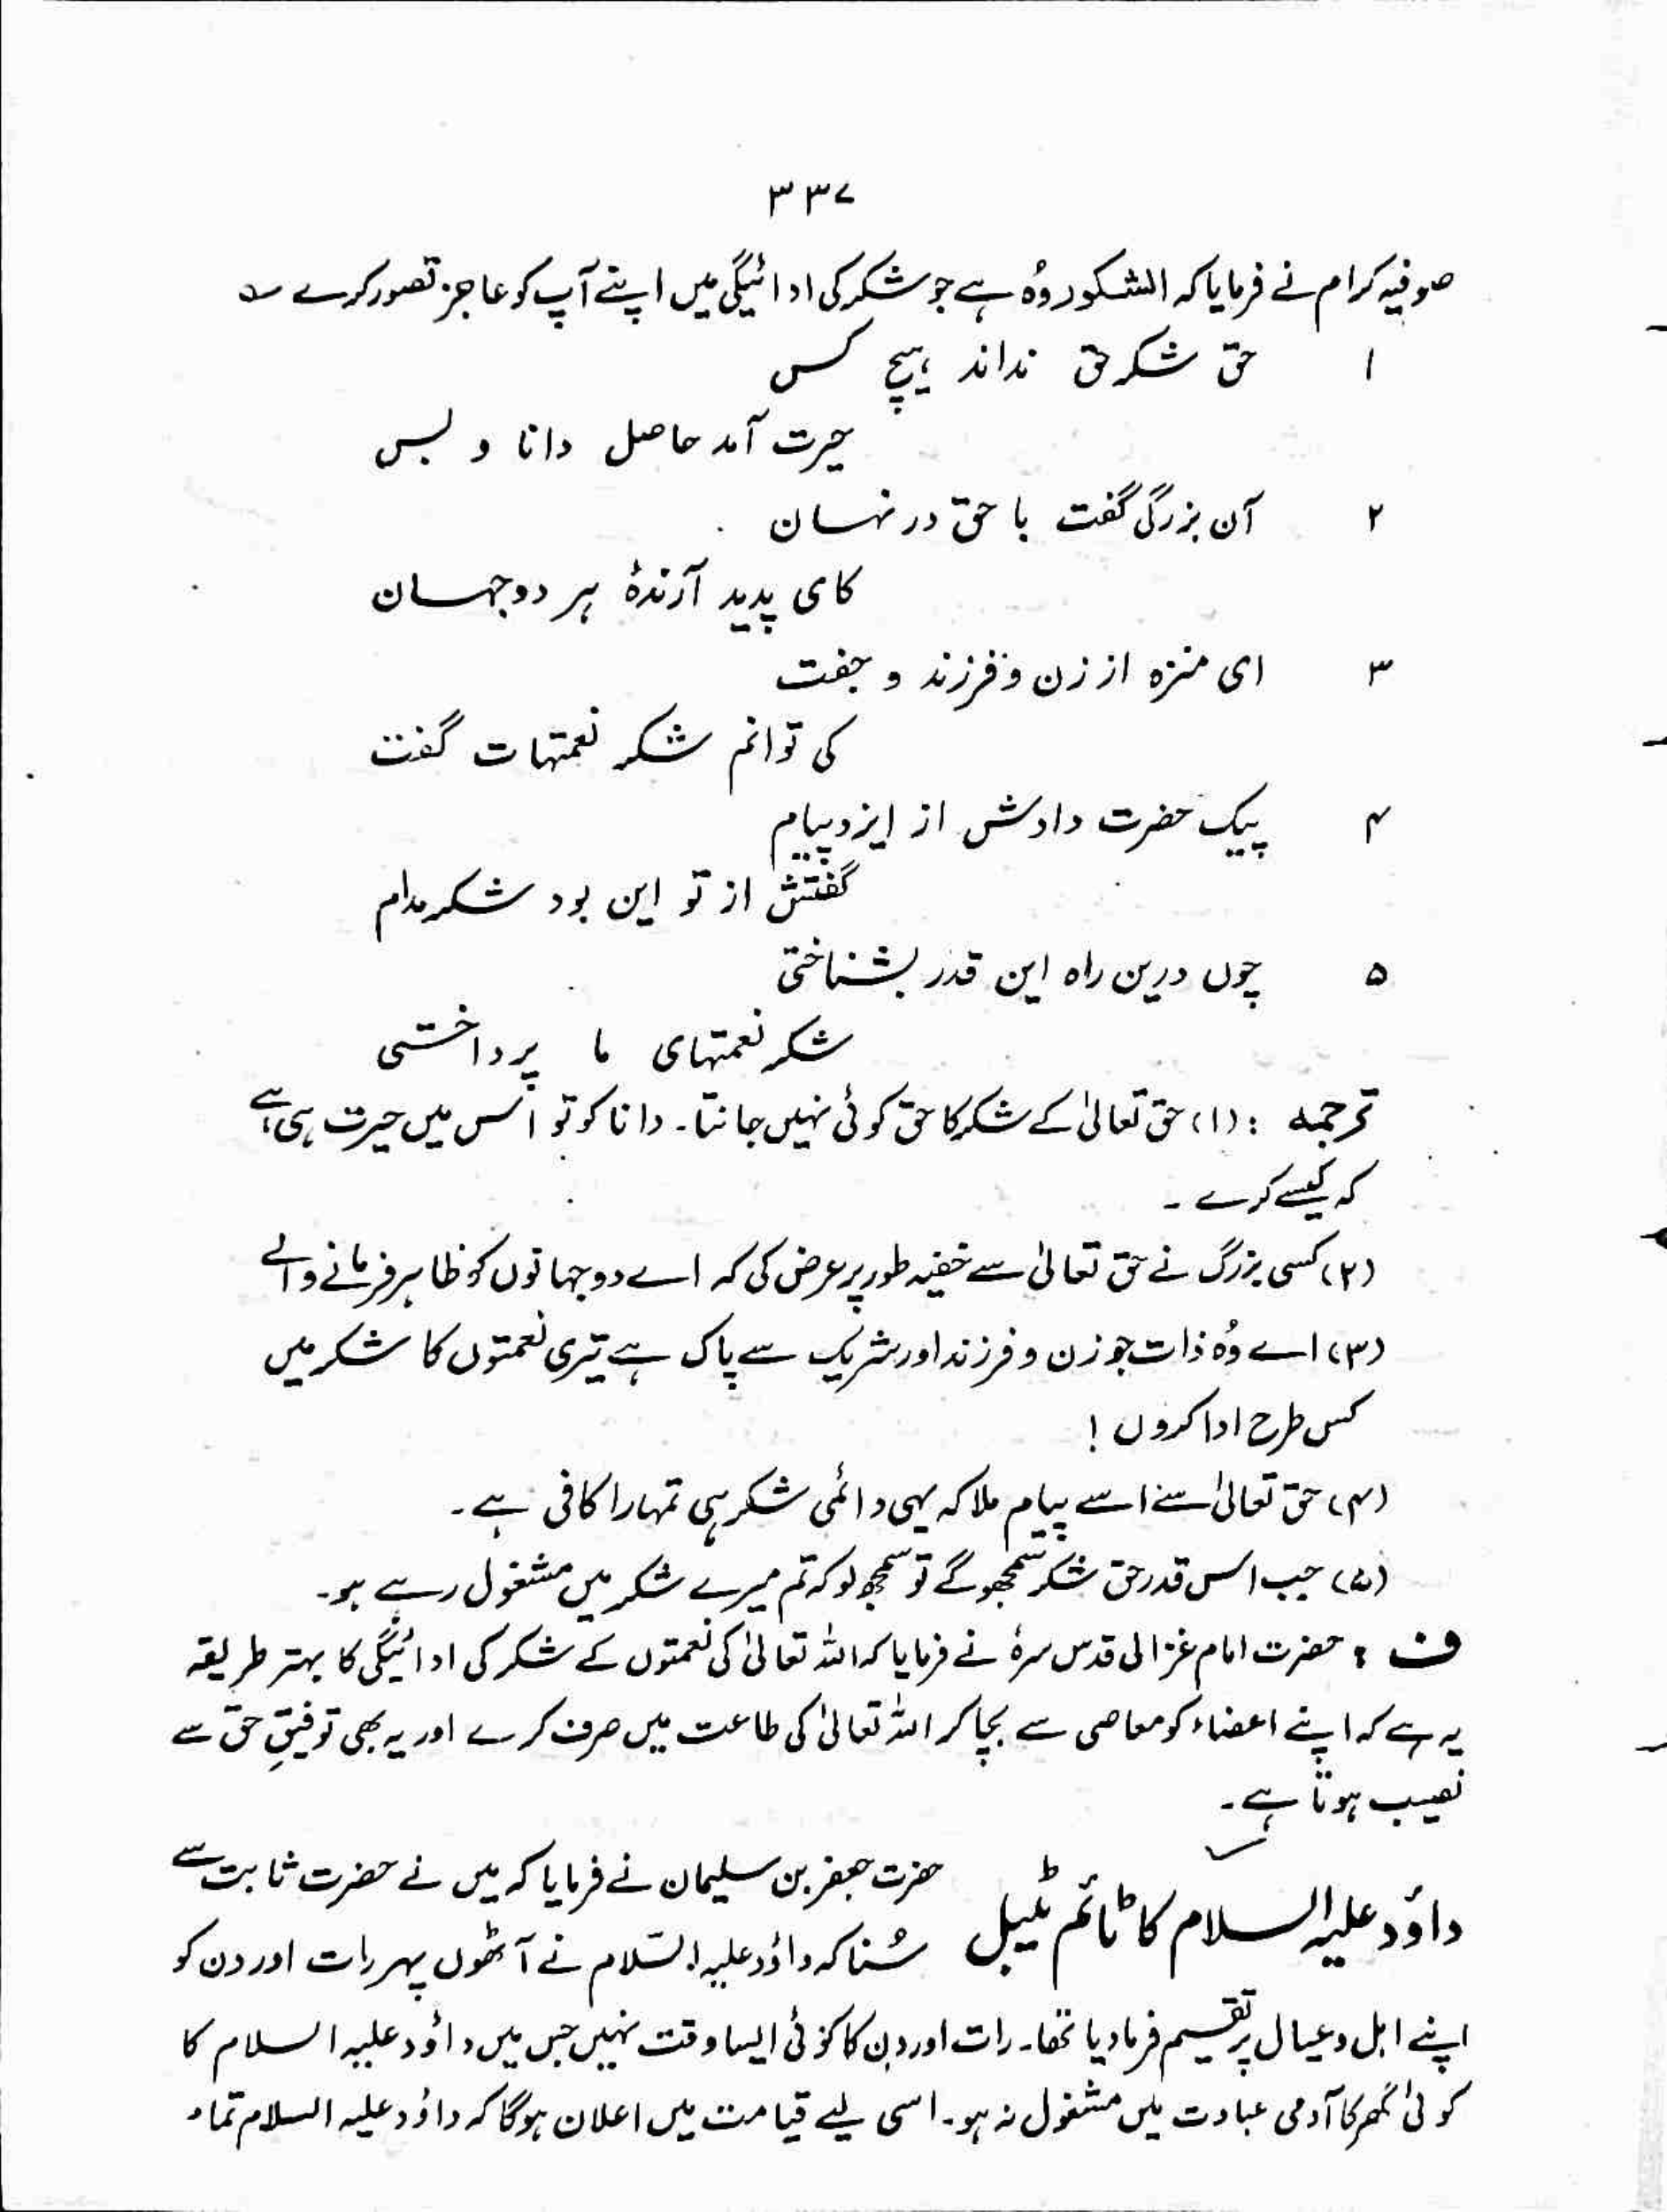 ۳۳۷
صوفیہ کرام نے فرمایا کہ الشکور وُہ ہے جو شکر کی ادائیگی میں اپنے آپ کو عاجز تصور کرے ؎
۱ حق شکر حق نداند ہیچ کس
حیرت آمد حاصل دانا و بس
۲ آن بزرگی گفت با حق در نہان
کای پدید آرندۂ ہر دو جہان
۳ ای منزہ از زن و فرزند و جفت
کی توانم شکر نعمتہات گفت
۴ پیک حضرت دادش از ایزد پیام
گفتش از تو این بود شکر مدام
۵ چوں درین راہ این قدر بشناختی
شکر نعمتہای ما پرداختی
ترجمہ : (۱) حق تعالیٰ کے شکر کا حق کوئی نہیں جانتا۔ دانا کو تو اس میں حیرت ہی ہے
کہ کیسے کرے ۔
(۲) کسی بزرگ نے حق تعالیٰ سے خفیہ طور پر عرض کی کہ اے دو جہانوں کو ظاہر فرمانے والے
(۳) اے وُہ ذات جو زن و فرزند اور شریک سے پاک ہے تیری نعمتوں کا شکر میں
کس طرح ادا کروں !
(۴) حق تعالیٰ سے اسے پیام ملا کہ یہی دائمی شکر ہی تمہارا کافی ہے ۔
(۵) جب اس قدر حق شکر سمجھو گے تو سمجھ لو کہ تم میرے شکر میں مشغول رہے ہو۔
ف : حضرت امام غزالی قدس سرہٗ نے فرمایا کہ اللہ تعالیٰ کی نعمتوں کے شکر کی ادائیگی کا بہتر طریقہ
یہ ہے کہ اپنے اعضاء کو معاصی سے بچا کر اللہ تعالیٰ کی طاعت میں صرف کرے اور یہ بھی توفیقِ حق سے
نصیب ہوتا ہے ۔
داؤد علیہ السلام کا ٹائم ٹیبل حضرت جعفر بن سلیمان نے فرمایا کہ میں نے حضرت ثابت سے
سُنا کہ داؤد علیہ السّلام نے آٹھوں پہر رات اور دن کو
اپنے اہل و عیال پر تقسیم فرما دیا تھا۔ رات اور دن کا کوئی ایسا وقت نہیں جس میں داؤد علیہ السلام کا
کوئی گھر کا آدمی عبادت میں مشغول نہ ہو۔ اسی لیے قیامت میں اعلان ہوگا کہ داؤد علیہ السلام تمام